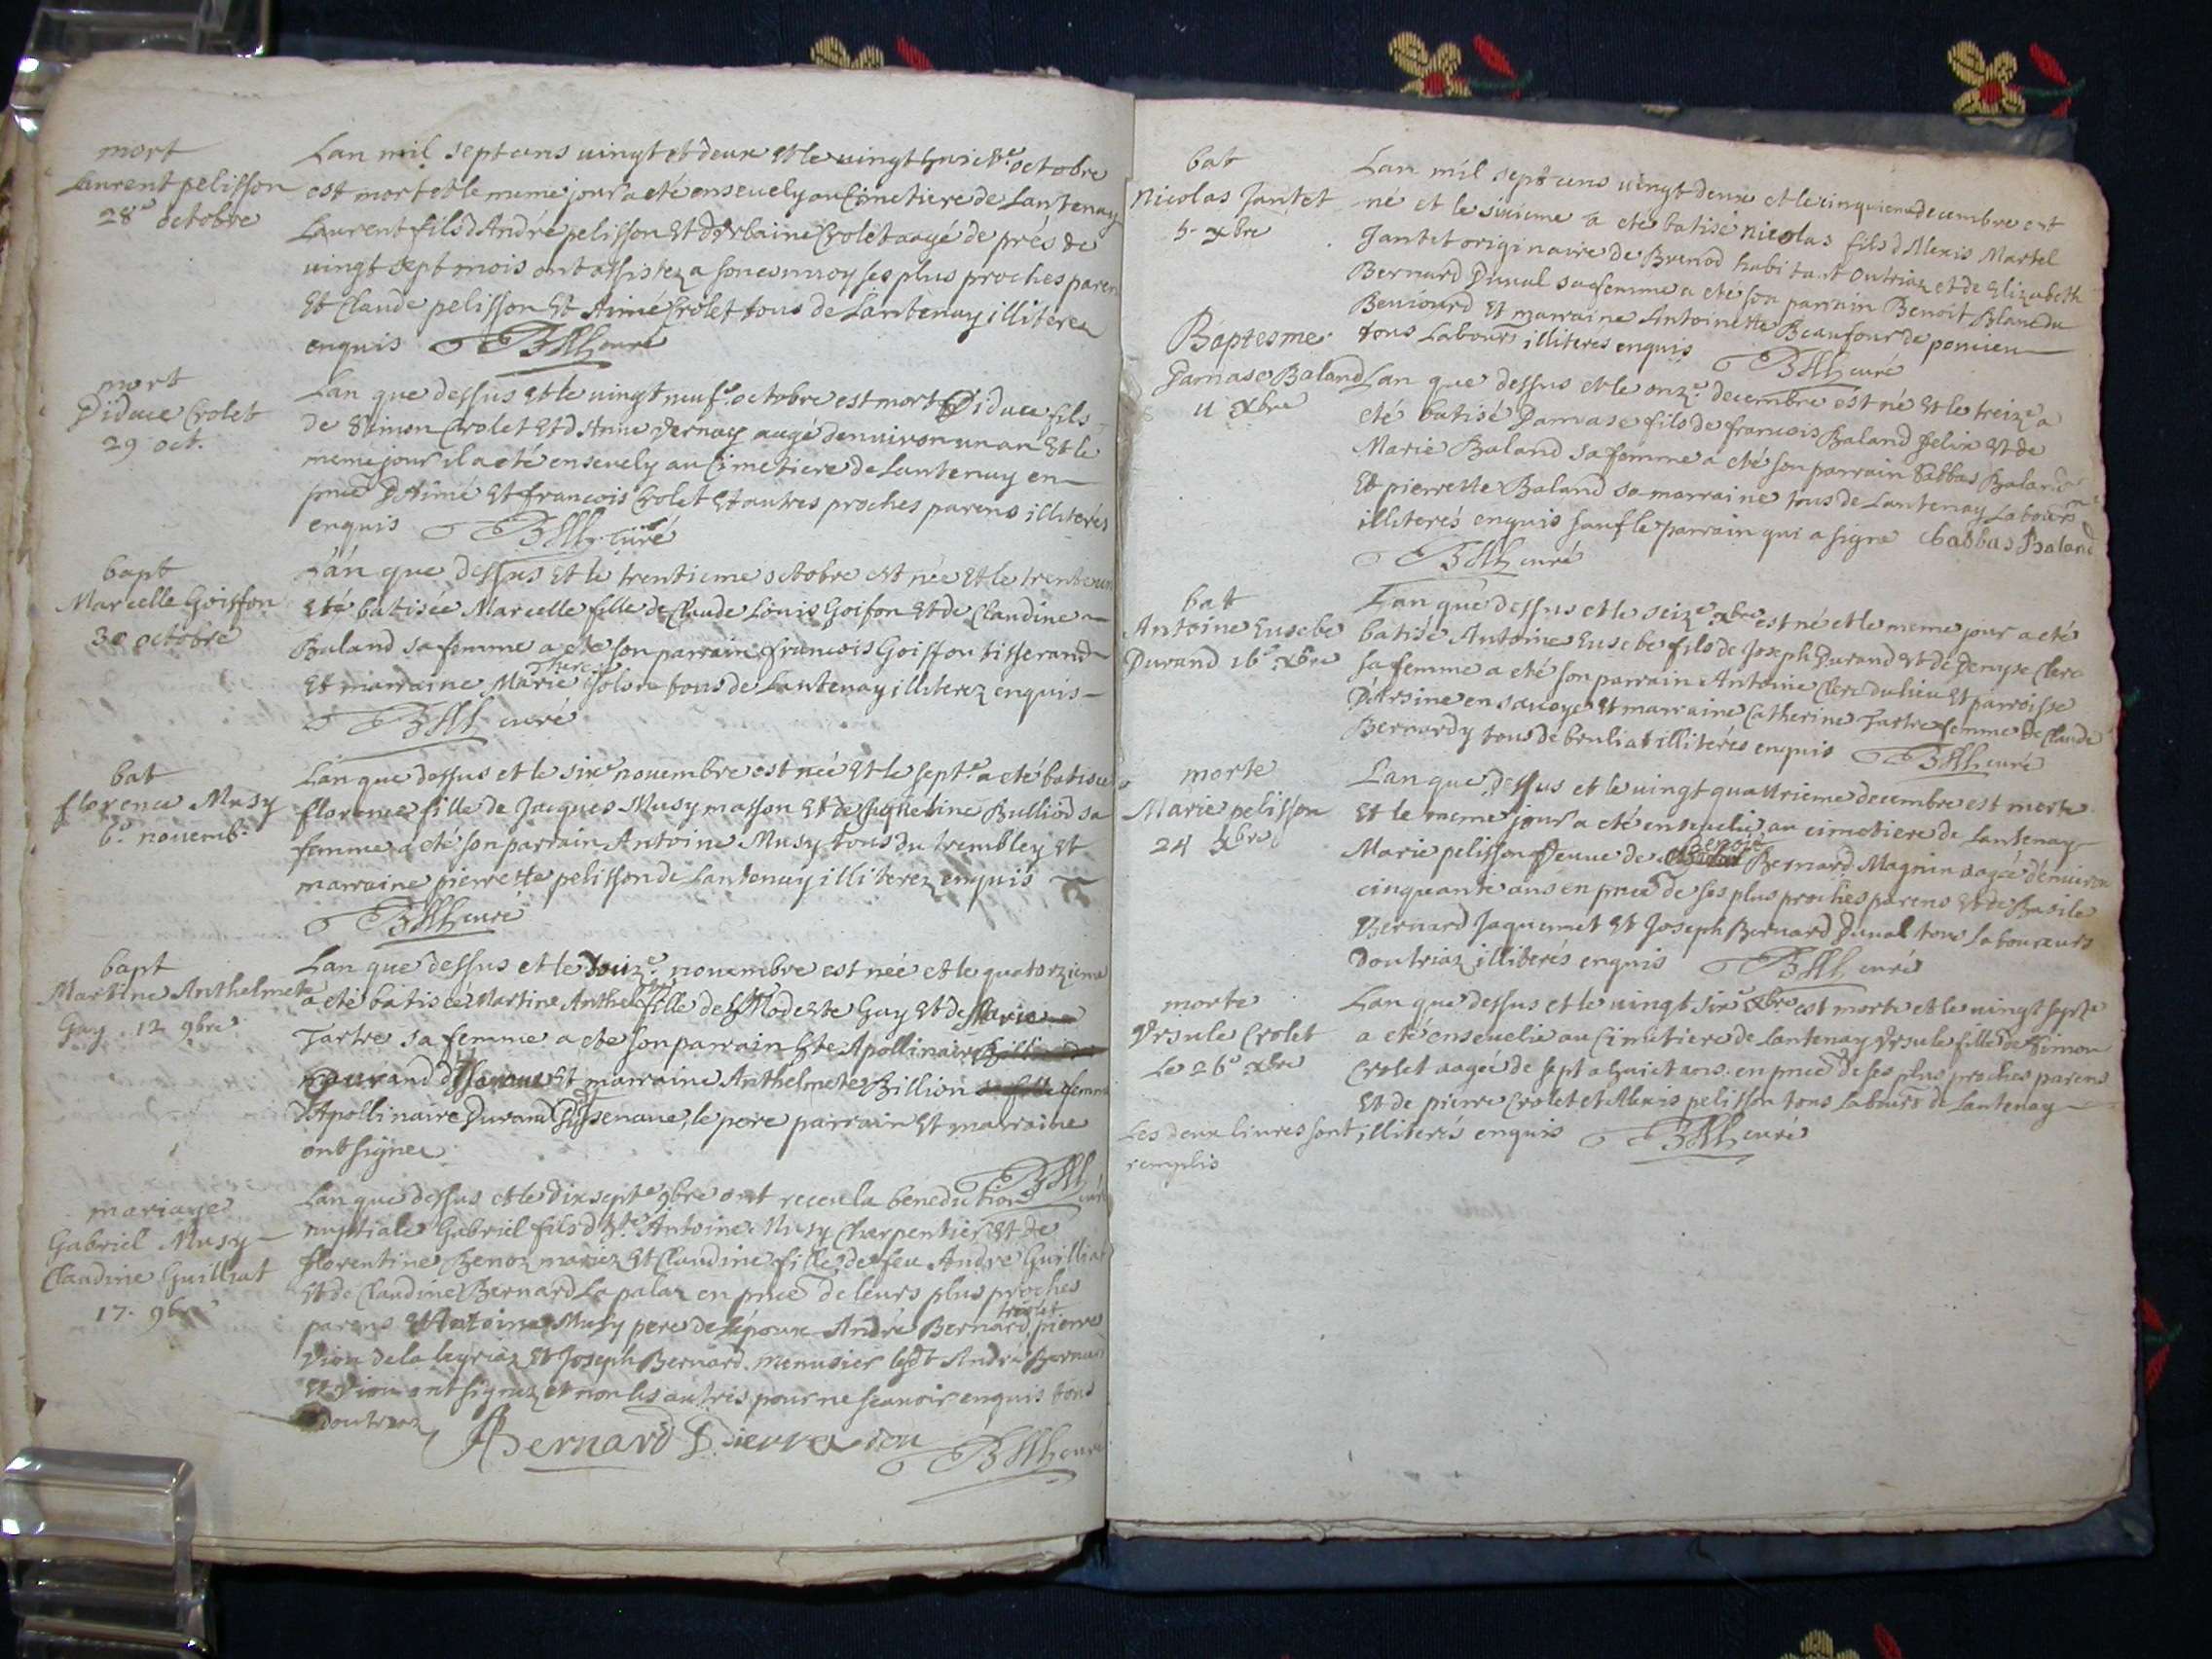 mort
Laurent pelisson
28e octobre
Lan mil sept cens uingt et deux et le uingt huicte octobre
est mort et le meme jour a eté enseuely au Cimetiere de Lantenay
Laurent fils d André pelisson et d Vrbaine Crolet aagé de prés de
uingt sept mois ont assistez a son conuoy ses plus proches paren
Et Claude pelisson et Aimé Crolet tous de Lantenay illiterez
enquis curé
mort
Didace Crolet
29 oct.
Lan que dessus et le uingt neufe octobre est mort Didace fils
de Simon Crolet et d Anne Vernay aagé denuiron un an et le
meme jour il a eté enseuely au Cimetiere de Lantenay en
pnce D Aimé et francois Crolet et autres proches parens illiterés
enquis curé
bapt
Marcelle Goiffon
30 octobre
Lán que dessus et le trentieme octobre est née et le trente un
eté batisée Marcelle fille de Claude Louis Goifon et de Claudine
Baland sa femme a ete son parrain francois Goiffon tisserand
et marraine Marie tous de Lantenay illiterez enquis
curé
bat
florence Musy
6e nouemb.
Lan que dessus et le sixe nouembre est née et le septe a eté batisee
florence fille de Jacques Musy masson et de Jaqueline Bulliod sa
femme a eté son parrain Antoine Musy tous du trembley et
marraine pierrette pelisson de Lantenay illiterez enquis
curé
bapt
Martine Anthelmete
Guy . 12 9bre
Lan que dessus et le nouembre est née et le quatorzieme
a eté batisée Martine Anthelmete fille de Modeste Guy et de Marie
Tartre sa femme a ete son parrain Apollinaire
Durand et marraine Anthelmete Billion femme
d Apollinaire Durand , le pere parrain et marraine
ont signez
curé
mariage
Gabriel Musy
Claudine Guilliat
17. 9bre
Lan que dessus et le dix septe 9bre ont receu la benediction
nuptiale Gabriel fils d Antoine Musy Charpentier et de
florentine Benoz mariez et Claudine fille de feu André Guilliat
et de Claudine Bernard Lapalaz en pnce de leurs plus proches
triolet
parens et Antoine Musy pere de Lépoux André Bernard, pierre
Vion de la leyriaz et Joseph Bernard menusier lesdt André Bernard
et Vion ont signez et non les autres pour ne scauoir enquis tous
doutriaz ABernard Pierre uion curé
bat
Nicolas Jantet
5. xbre
Lan mil sept cens uingt deux et le cinquieme decembre est
né et le sixieme a eté batisé nicolas fils d Alexis Martel
Jantet originaire de Brenod habitant Outriaz et de Elizabeth
Bernard Duual sa femme a eté son parrain Benoit Blanc du
et marraine Antoinette Beaufour de poncieu
tous Labours illiteres enquis curé
Baptesme
Damase Baland
11 xbre
Lan que dessus et le onze decembre est né et le treize a
eté batisé Damase fils de francois Baland felix et de
Marie Baland sa femme a eté son parrain Sabbas Baland
Et pierrette Baland sa marraine tous de Lantenay Labours
illiterés enquis sauf le parrain qui a signé Sabbas Baland
curé
bat
Antoine Eusebe
Durand 16e xbre
Lan que dessus et le seize xbre est né et le meme jour a eté
batisé Antoine Eusebe fils de Joseph Durand et de Denyse Clerc
sa femme a eté son parrain Antoine Clerc du lieu et parroisse
D Arsine en sauoye et marraine Catherine Tartre femme de Claude
Bernardy tous de bruliat illiterés enquis curé
morte
Marie pelisson
24 xbre
Lan que dessus et le uingt quattrieme decembre est morte
Et le meme jour a eté enseuelie au cimetiere de Lantenay
Benoit
Marie pelisson Veuue de Bernard Magnin aagée d énuiron
cinquante ans en pnce de ses plus proches parens et de Basile
Bernard Jaquemet et Joseph Bernard Duual tous laboureurs
Doutriaz illiterés enquis curé
morte
Vrsule Crolet
Le 26e xbre
Lan que dessus et le uingt sixe xbre est morte et le uingt septe
a eté enseuelie au Cimetiere de Lantenay Vrsule fille de Simon
Crolet aagée de sept a huict ans en pnce de ses plus proches parens
Et de pierre Crolet et Alexis pelisson tous Labours de Lantenay
illiterés enquis curé
Les deux liures sont
remplis